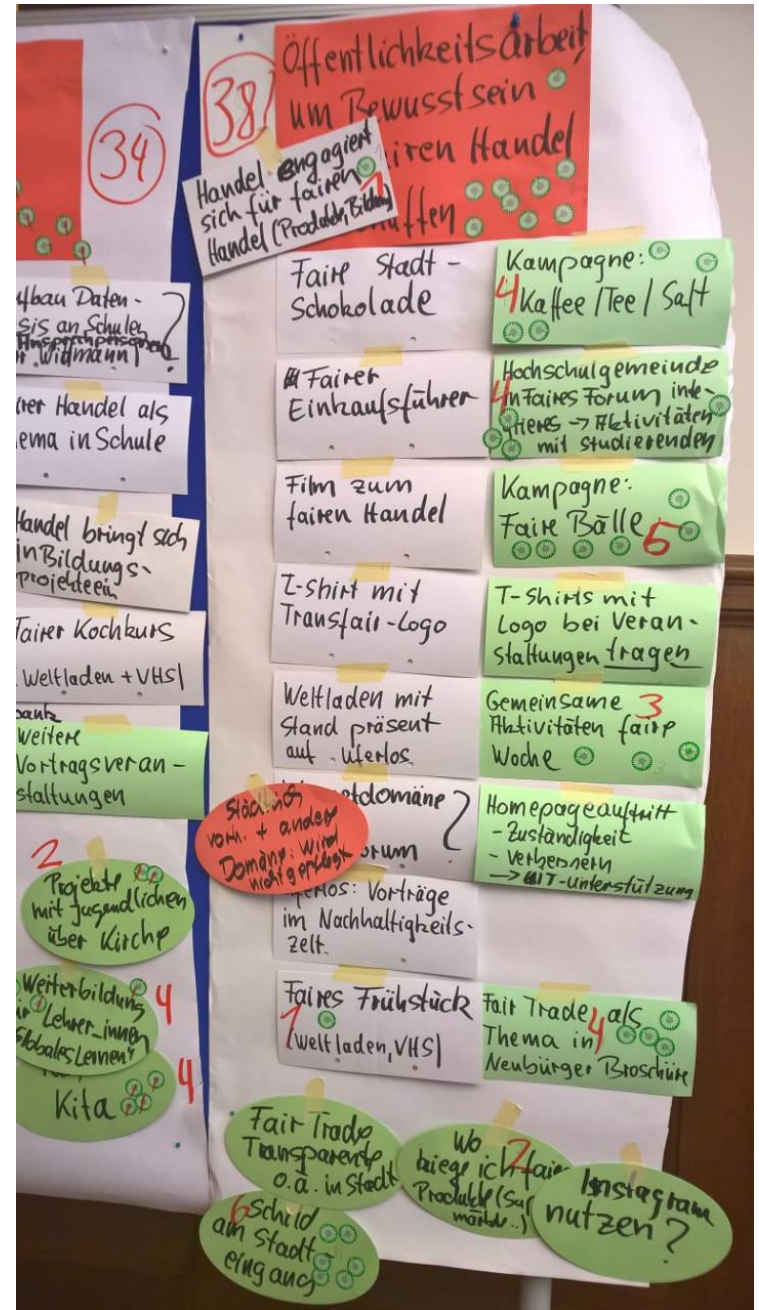 34
ufbau Daten-
sis an Schulen
Ansprechpersonen
r. Widmann) ?
irer Handel als
ema in Schule
Handel bringt sich
in Bildungs-
projekte ein
Fairer Kochkurs
Weltladen + VHS)
bank
Weitere
Vortragsveran-
staltungen
2
Projekte
mit Jugendlichen
über Kirche
Weiterbildung 4
Lehrer_innen
Globales Lernen"
Kita 4
38
Öffentlichkeitsarbeit,
um Bewusstsein
airen Handel
affen
Handel engagiert
sich für fairen
Handel (Produkte, Bildung)
1
Faire Stadt-
Schokolade
Fairer
Einkaufsführer
Film zum
fairen Handel
T-Shirt mit
Transfair-Logo
Weltladen mit
Stand präsent
auf Uferlos
etdomäne ?
orum
Städtisch
vorh. + andere
Domäne: Wird
nicht gepflegt
ferlos: Vorträge
im Nachhaltigkeits-
zelt.
Faires Frühstück
1
(Weltladen, VHS)
Kampagne:
4 Kaffee / Tee / Saft
Hochschulgemeinde
4 in Faires Forum inte-
grieren → Aktivitäten
mit Studierenden
Kampagne:
Faire Bälle 5
T-Shirts mit
Logo bei Veran-
staltungen tragen
Gemeinsame 3
Aktivitäten faire
Woche
3
Homepageauftritt
- Zuständigkeit
- Verbessern
→ IT-Unterstützung
Fair Trade als
4
Thema in
Neubürger Broschüre
Fair Trade
Transparente
o.ä. in Stadt
6 Schild
am Stadt-
eingang
Wo
2
kriege ich faire
Produkte (Su
märkte..)
Instagram
nutzen?